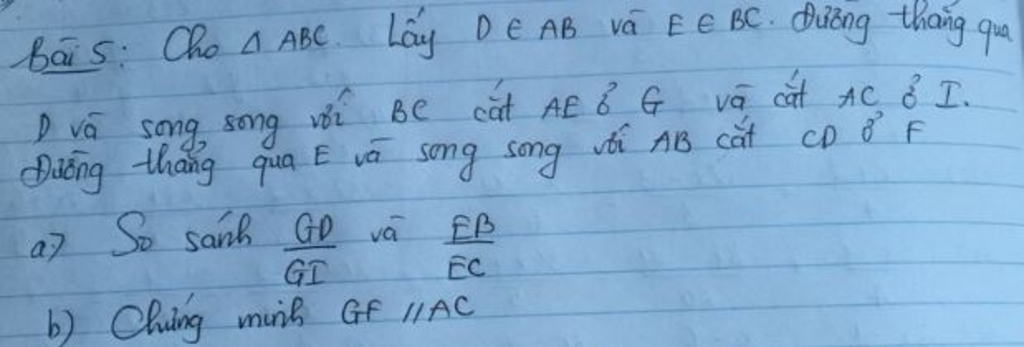 Bài 5: Cho Δ ABC. Lấy D ∈ AB và E ∈ BC. Đường thẳng qua
D và song song với BC cắt AE ở G và cắt AC ở I.
Đường thẳng qua E và song song với AB cắt CD ở F
a) So sánh GD/GI và EB/EC
b) Chứng minh GF // AC